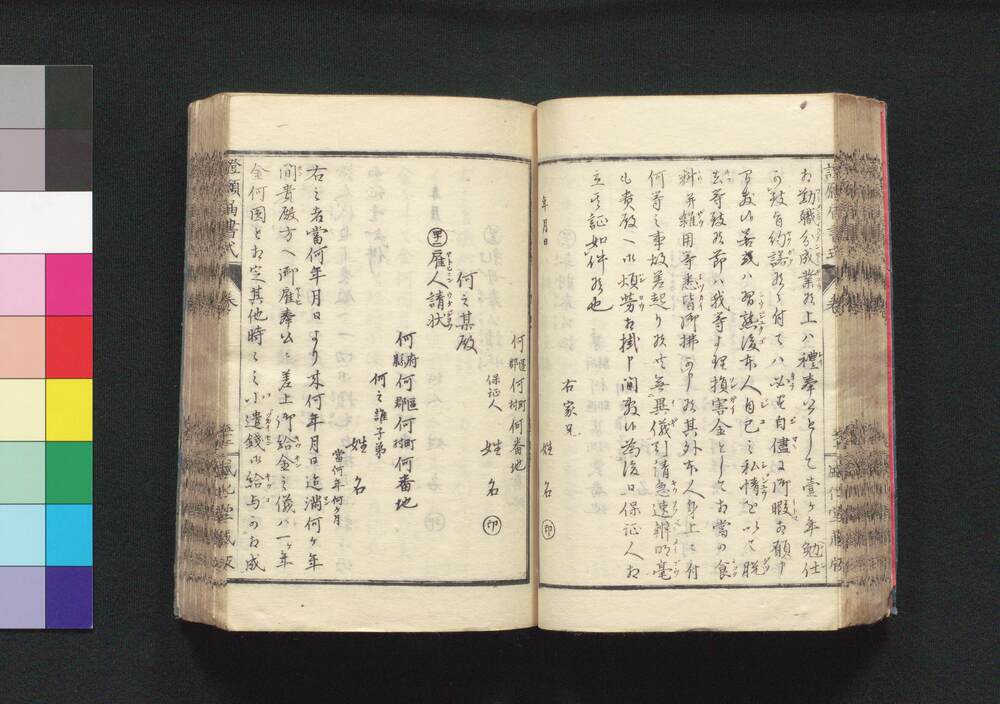 相勤職分成業ノ上ハ禮奉公として壹ヶ年勉仕
可致旨約諾候ニ付てハ必ず自儘ニ御暇相願申
間敷候若或ハ習熟後本人自己之私情を以て脱
去等致候節ハ我等より損害金として相當の食
料并雑用等悉皆御拂可申候其外本人身上ニ付
何等之事故差起り候共無異儀引請急速辨明毫
も貴殿へ御煩労相掛申間敷候為後日保証人相
立て証如件候也
年月日
右家兄
姓名㊞
何區郡何町村何番地
保証人
姓名㊞
何之某殿
雇人請状
何府縣何區郡何町村何番地
何之誰子弟
姓名
當何年何ヶ月
右之者當何年月日より来何年月日迄満何ヶ年
間貴殿方へ御雇奉公ニ差上御給金之儀ハ一ヶ年
金何圓と相定其他時々之小遣錢御給与可相成
證願届書式
巻